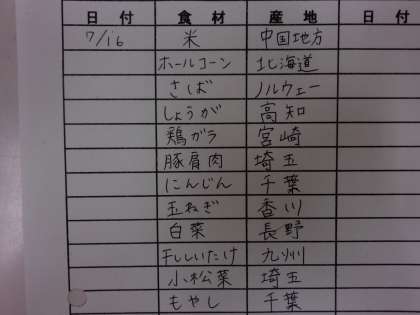 日付 食材 産地 日付
7/16 米 中国地方
ホールコーン 北海道
さば ノルウェー
しょうが 高知
鶏ガラ 宮崎
豚肩肉 埼玉
にんじん 千葉
玉ねぎ 香川
白菜 長野
干ししいたけ 九州
小松菜 埼玉
もやし 千葉